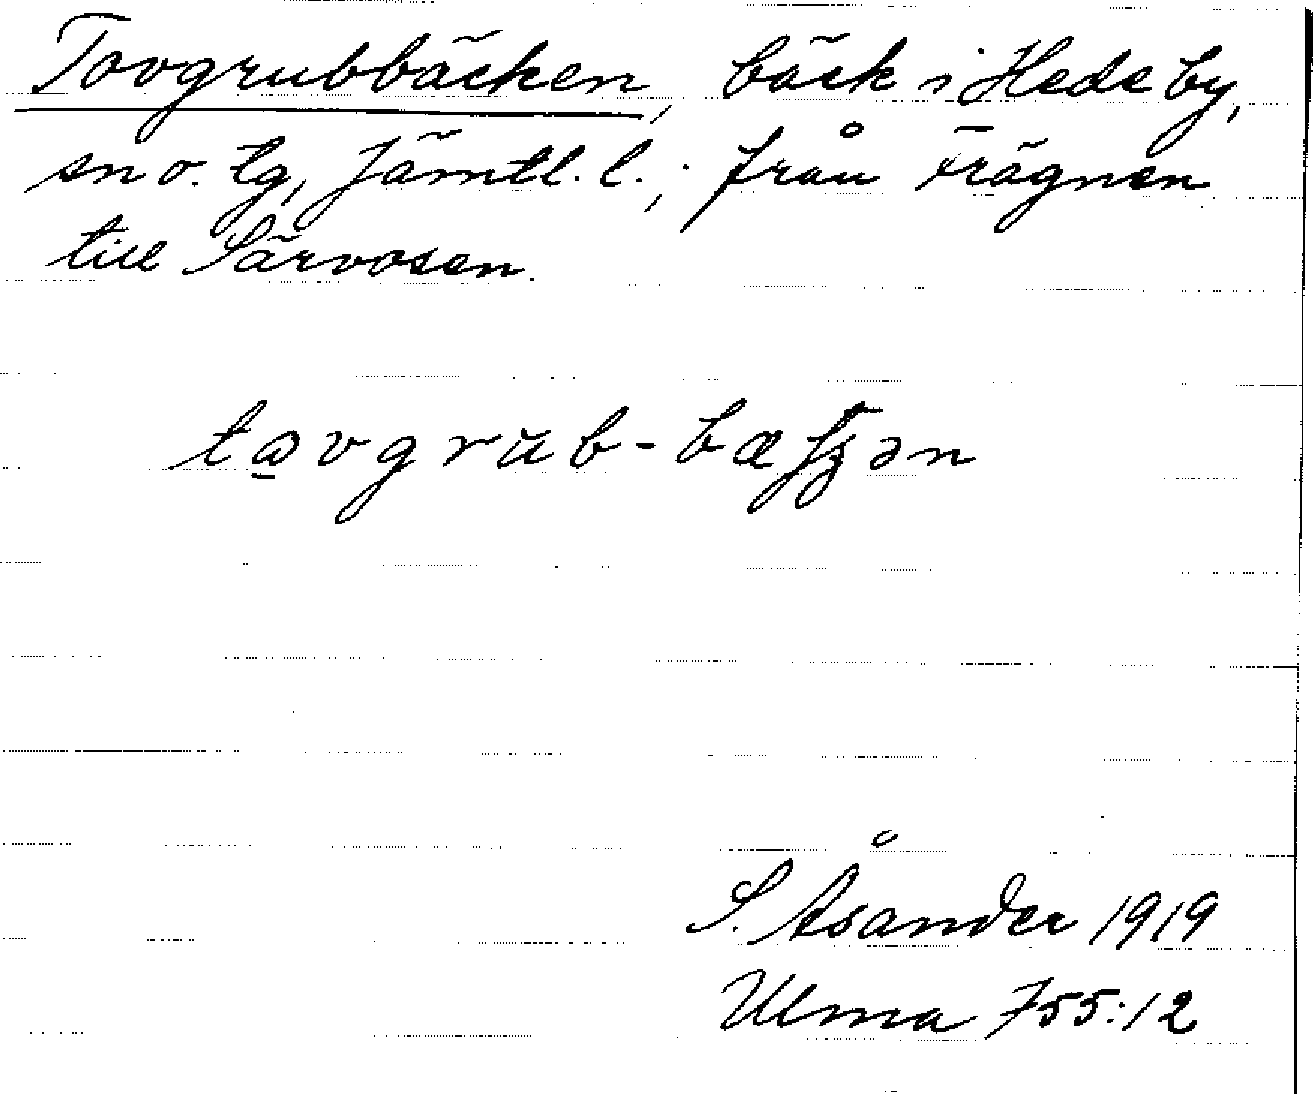 Tovgrubbäcken, bäck i Hede by,
sn o. tg, Jämtl. l.; från Frägnen
till Särvosen.
tavgrub-bæʃʒən
S. Åsander 1919
Ulma 755:12